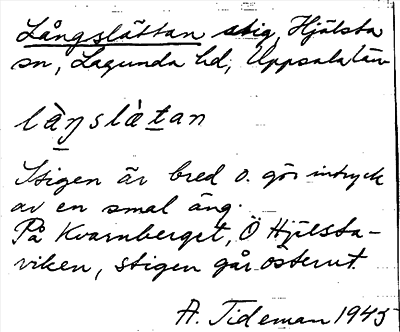 Långslättan stig, Hjälsta
sn, Lagunda hd, Uppsala län
làŋslàtan
Stigen är bred o. gör intryck
av en smal äng.
På Kvarnberget, Ö Hjälsta-
viken, stigen går österut.
A. Tideman 1945